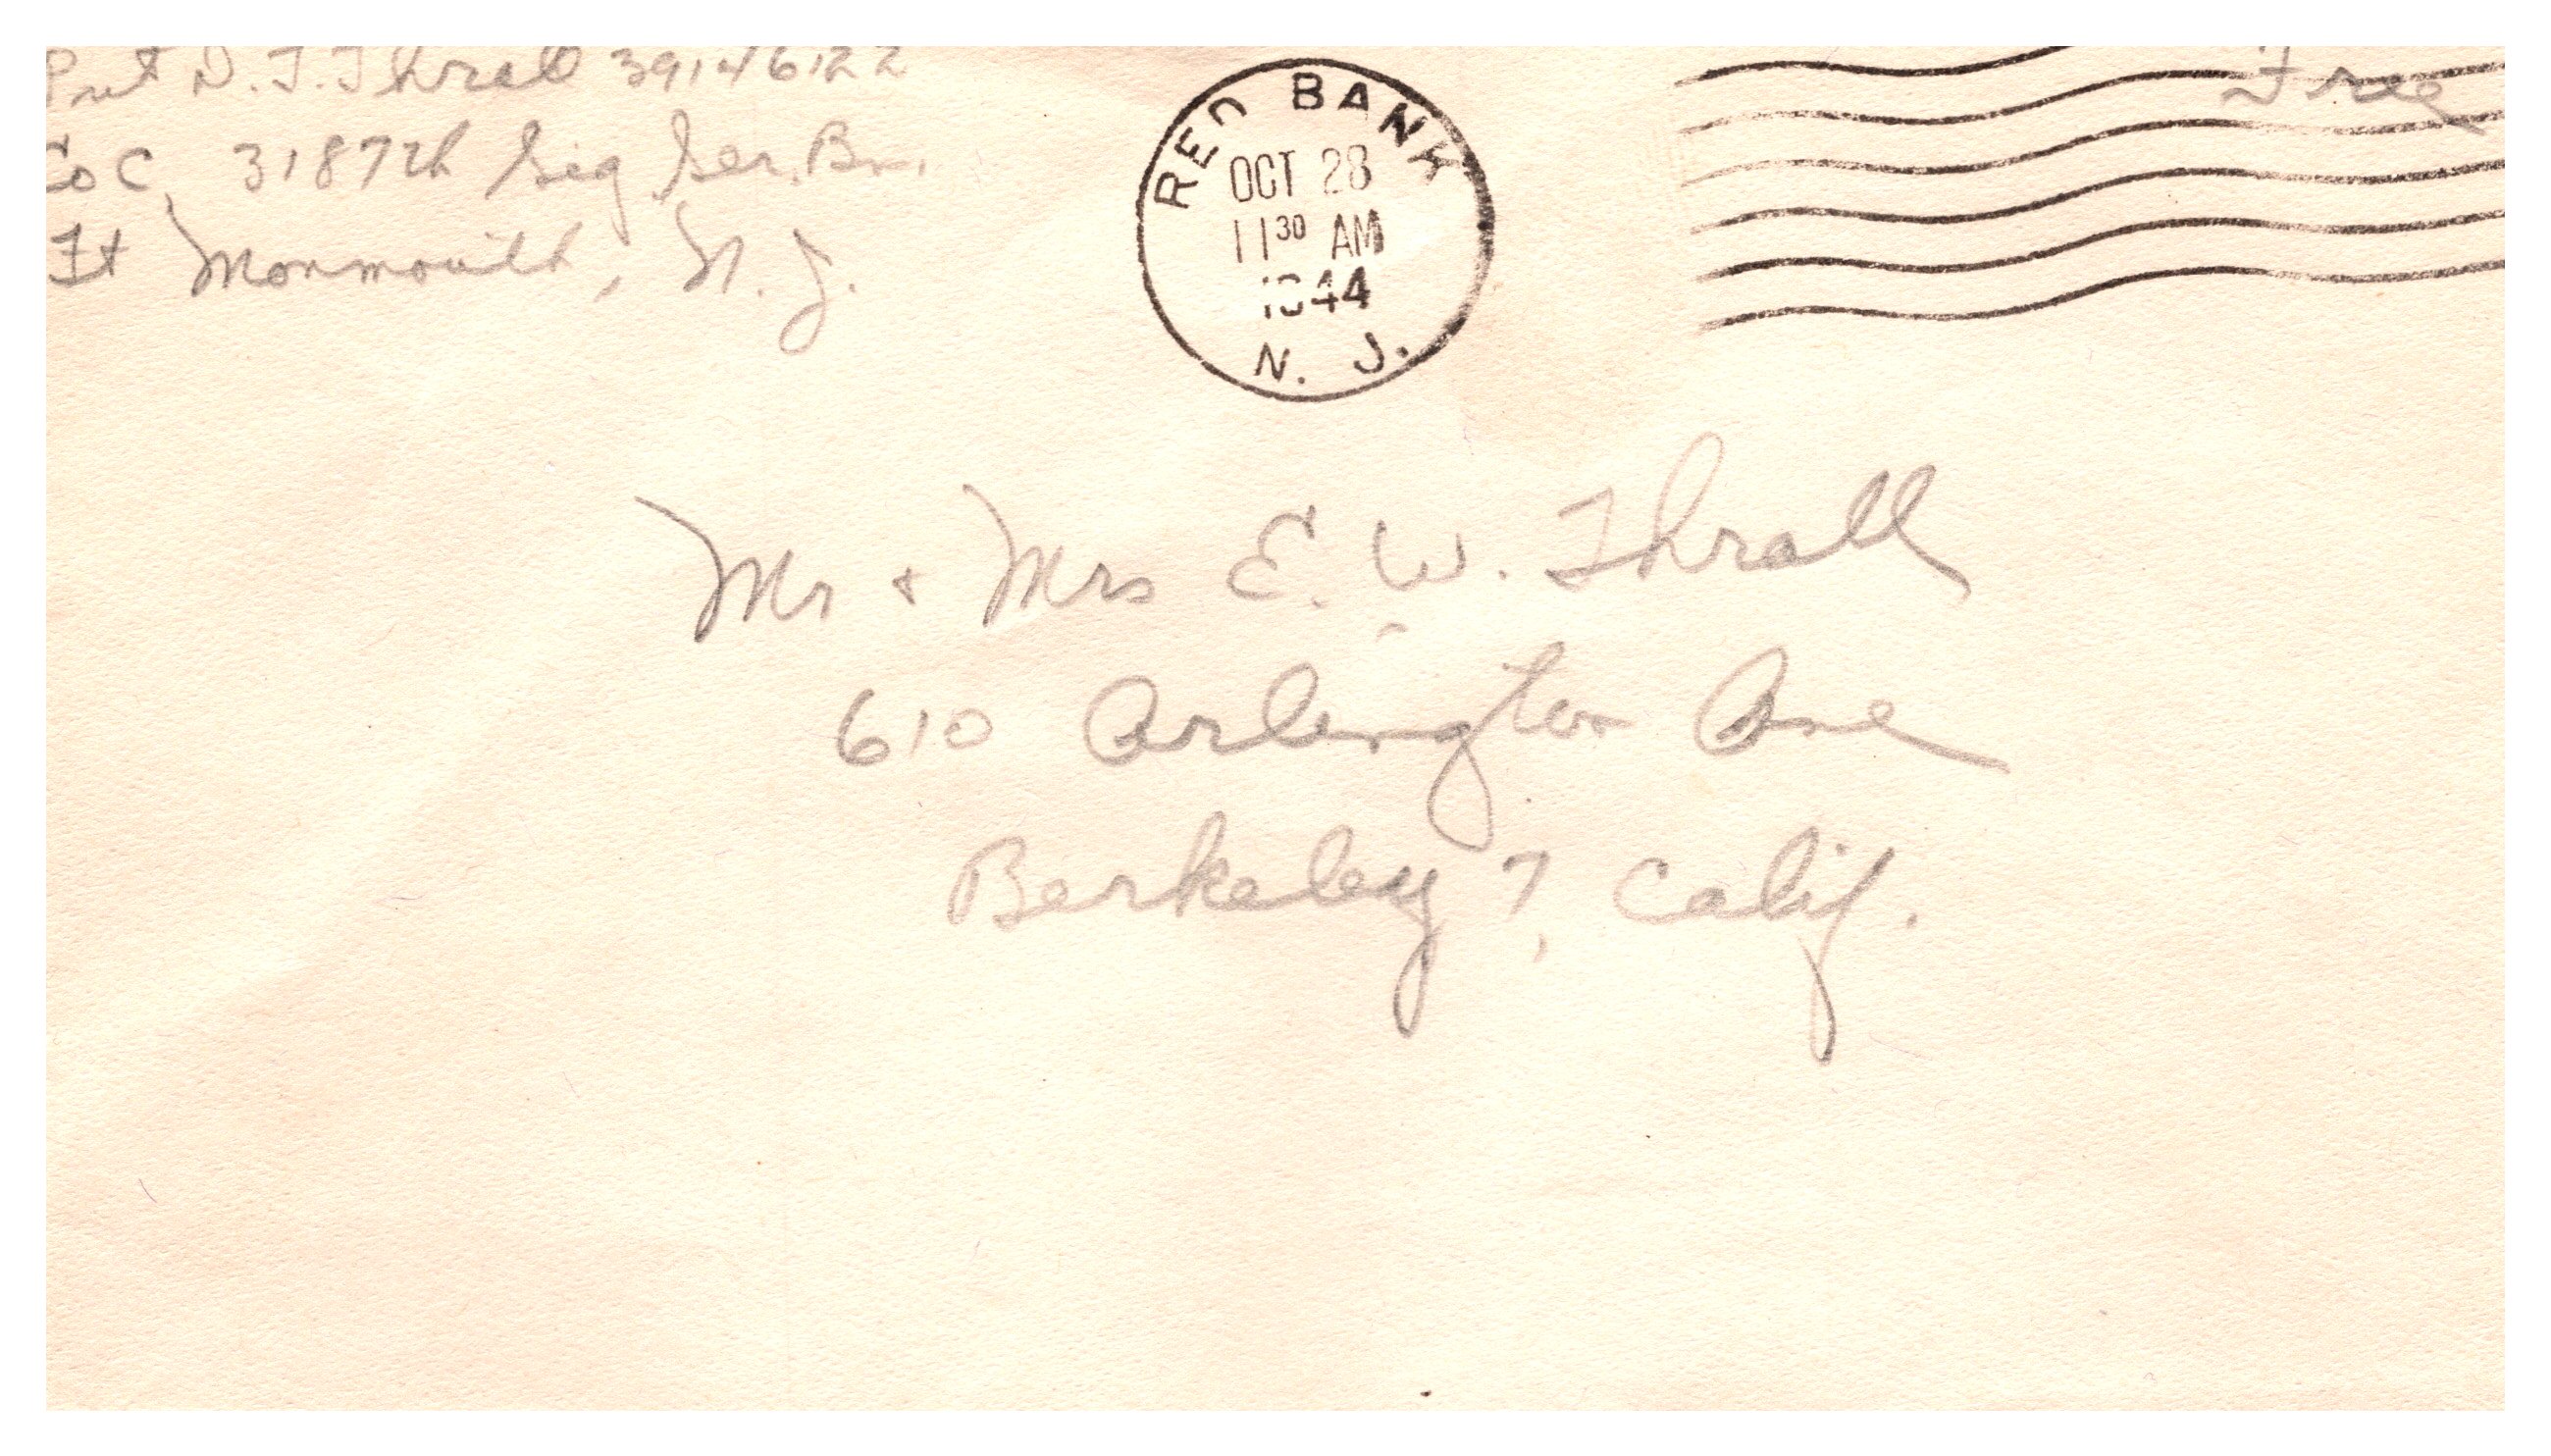 Pvt D. T. Thrall 39146122
Co C, 3187th Sig Ser. Bn.
Ft Monmouth, N. J.
RED BANK
OCT 28
11 30 AM
1944
N. J.
Free
Mr + Mrs E. W. Thrall
610 Arlington Ave
Berkeley 7, Calif.